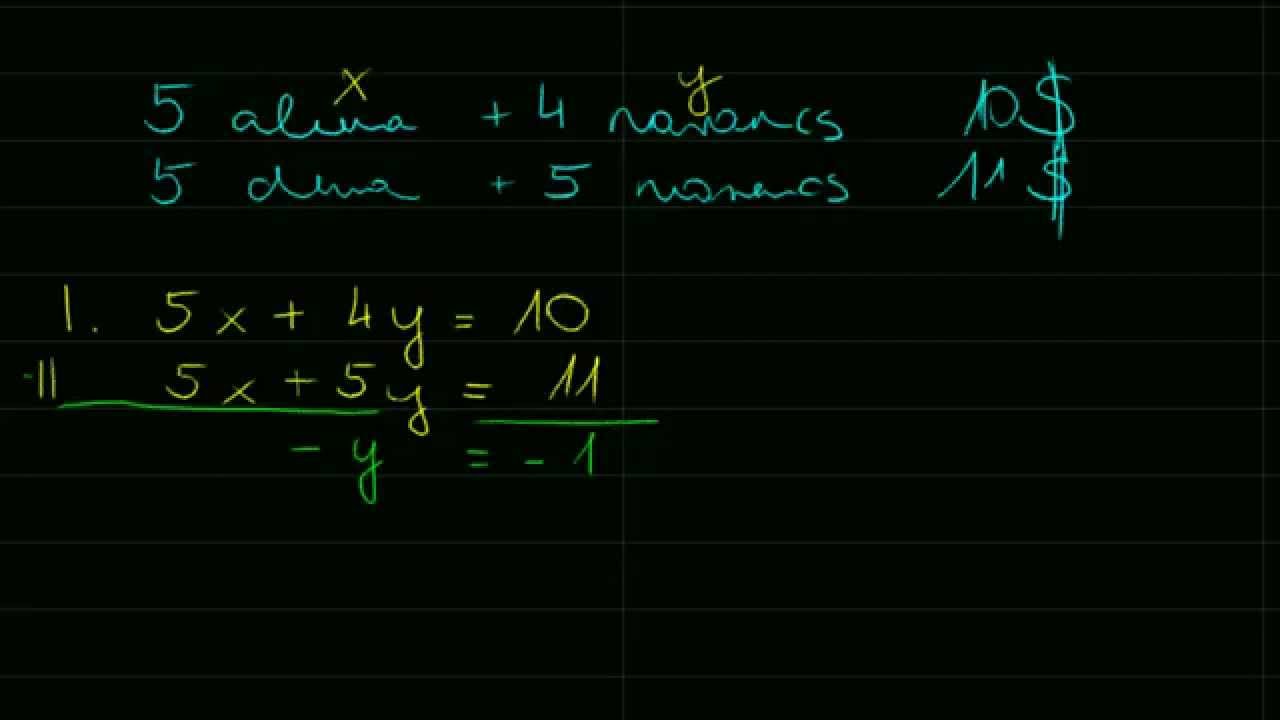 x y
5 alma + 4 narancs 10 $
5 alma + 5 narancs 11 $
I. 5x + 4y = 10
-II 5x + 5y = 11
- y = - 1